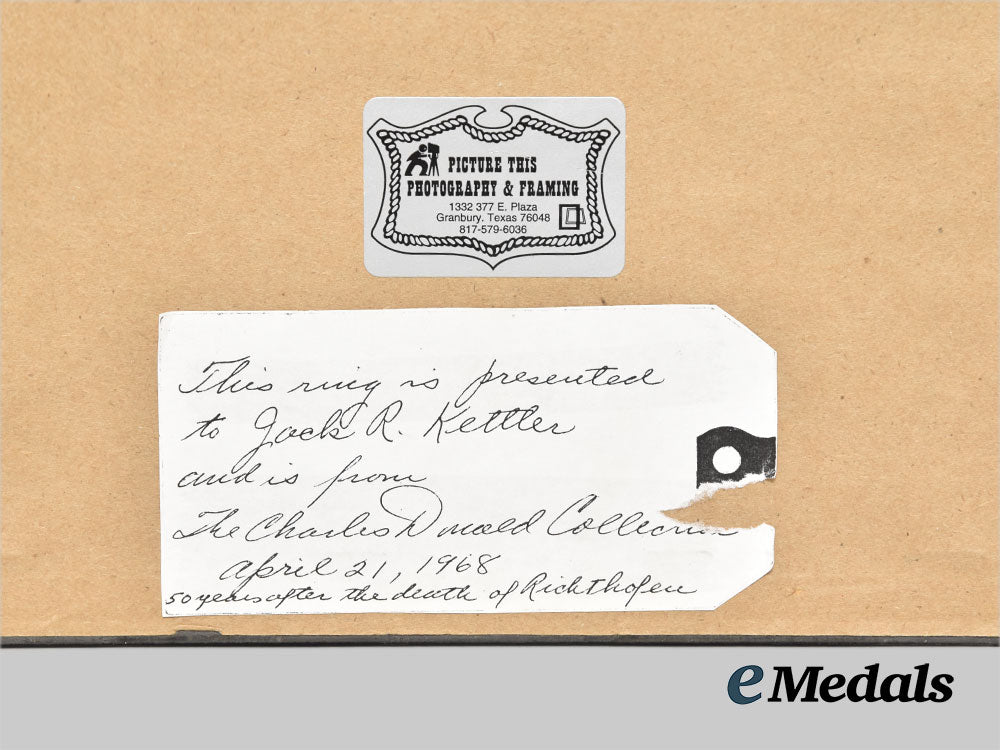 PICTURE THIS
PHOTOGRAPHY & FRAMING
1332 377 E. Plaza
Granbury, Texas 76048
817-579-6036
This ring is presented
to Jack R. Kettler
and is from
The Charles Donald Collection
April 21, 1968
50 years after the death of Richthofen
eMedals